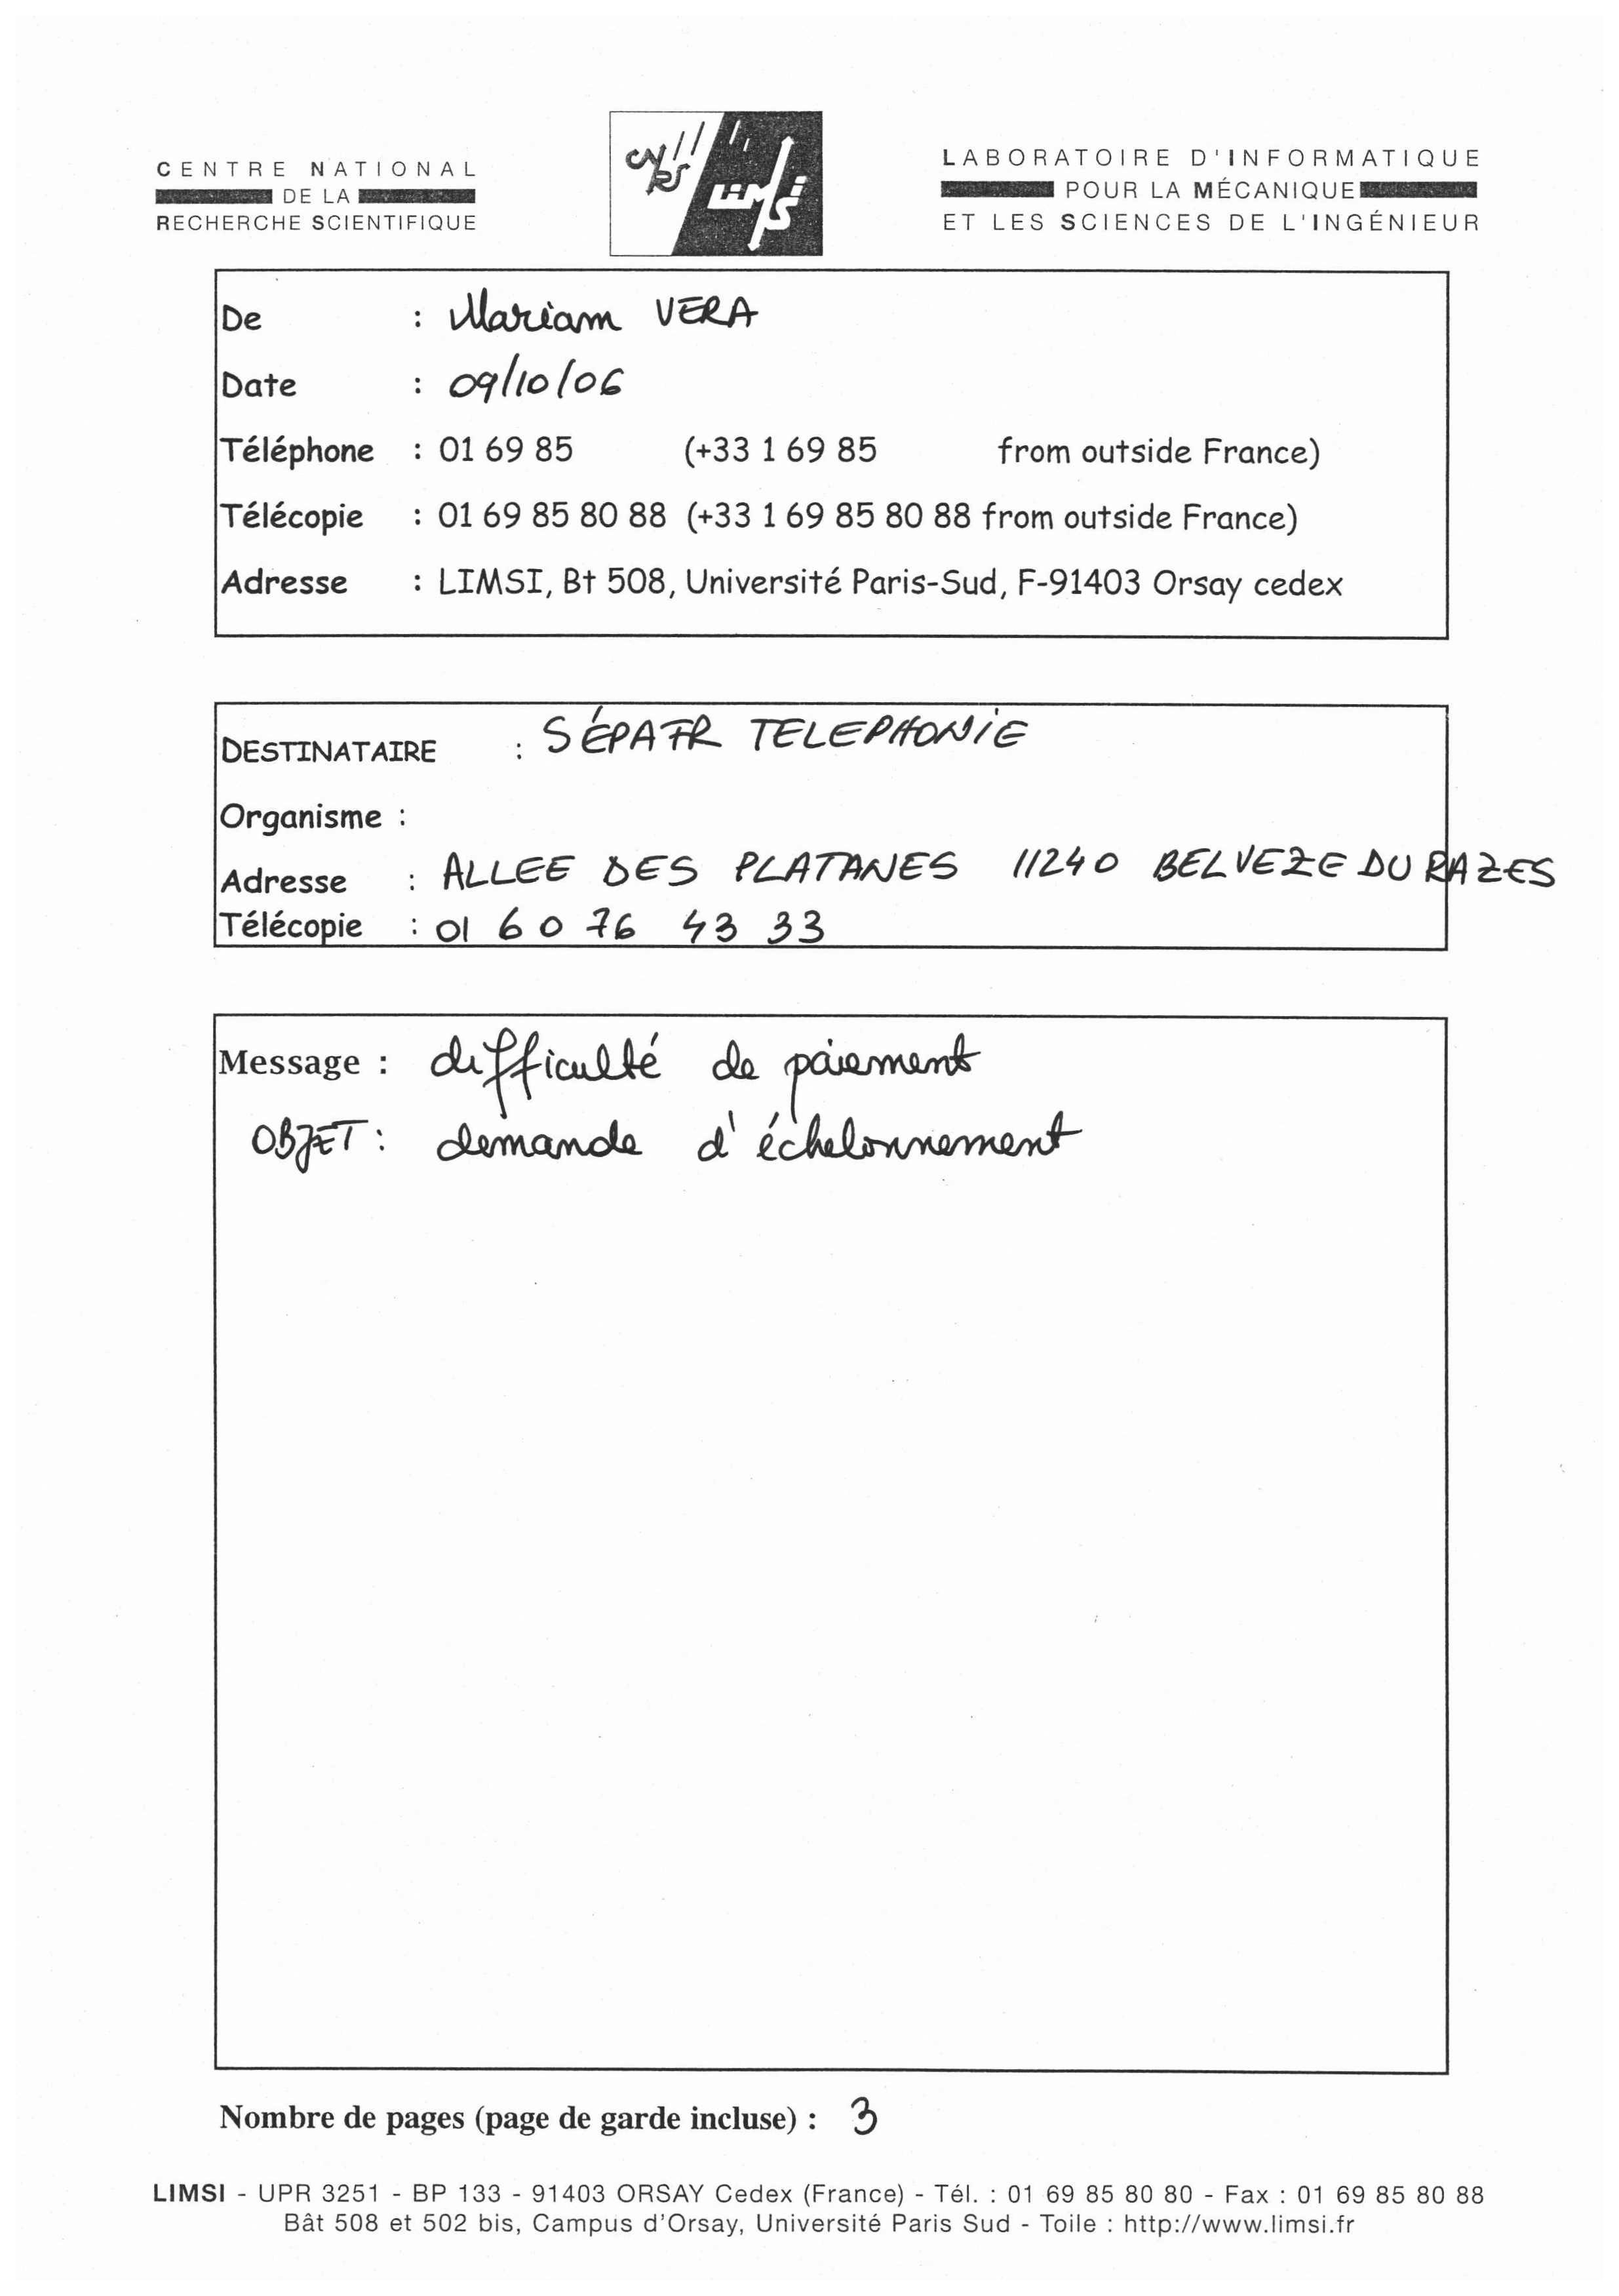 CENTRE NATIONAL
DE LA
RECHERCHE SCIENTIFIQUE
CNRS
LIMSI
LABORATOIRE D'INFORMATIQUE
POUR LA MÉCANIQUE
ET LES SCIENCES DE L'INGÉNIEUR
De : Mariam VERA
Date : 09/10/06
Téléphone : 01 69 85 (+33 1 69 85 from outside France)
Télécopie : 01 69 85 80 88 (+33 1 69 85 80 88 from outside France)
Adresse : LIMSI, Bt 508, Université Paris-Sud, F-91403 Orsay cedex
DESTINATAIRE : SÉPAFR TELEPHONIE
Organisme :
Adresse : ALLEE DES PLATANES 11240 BELVEZE DU RAZES
Télécopie : 01 60 76 43 33
Message : difficulté de paiement
OBJET : demande d'échelonnement
Nombre de pages (page de garde incluse) : 3
LIMSI - UPR 3251 - BP 133 - 91403 ORSAY Cedex (France) - Tél. : 01 69 85 80 80 - Fax : 01 69 85 80 88
Bât 508 et 502 bis, Campus d'Orsay, Université Paris Sud - Toile : http://www.limsi.fr